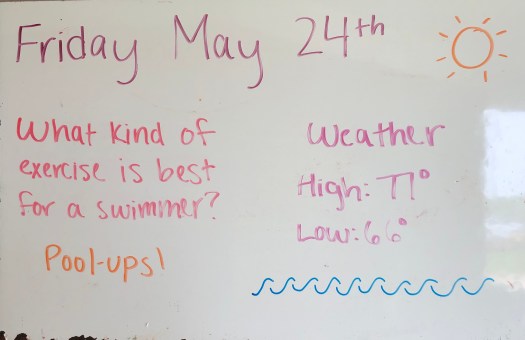 Friday May 24th
What kind of
exercise is best
for a swimmer?
Pool-ups!
Weather
High: 77°
Low: 66°